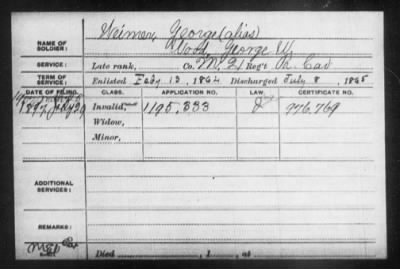 Weimer, George (alias)
NAME OF SOLDIER: Wood, George W.
SERVICE: Late rank, Co. M, 21 Reg't Pa. Cav
TERM OF SERVICE: Enlisted Feby 13, 1864 Discharged July 8, 1865
DATE OF FILING. CLASS. APPLICATION NO. LAW. CERTIFICATE NO.
1897, July 29 Invalid, 1195,333 976,769
Widow,
Minor,
ADDITIONAL SERVICES:
REMARKS:
Died , 1 , at